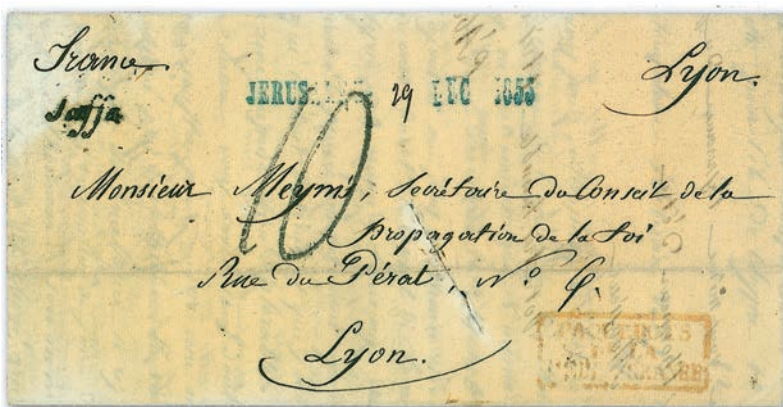 France
Lyon.
Jaffa
JERUSALEM 29 DEC 1853
10
Monsieur Meynis, Secrétaire du Conseil de la
Propagation de la Foi
Rue du Pérat, N.º 6.
Lyon.
PAQUEBOTS
DE LA
MÉDITERRANÉE